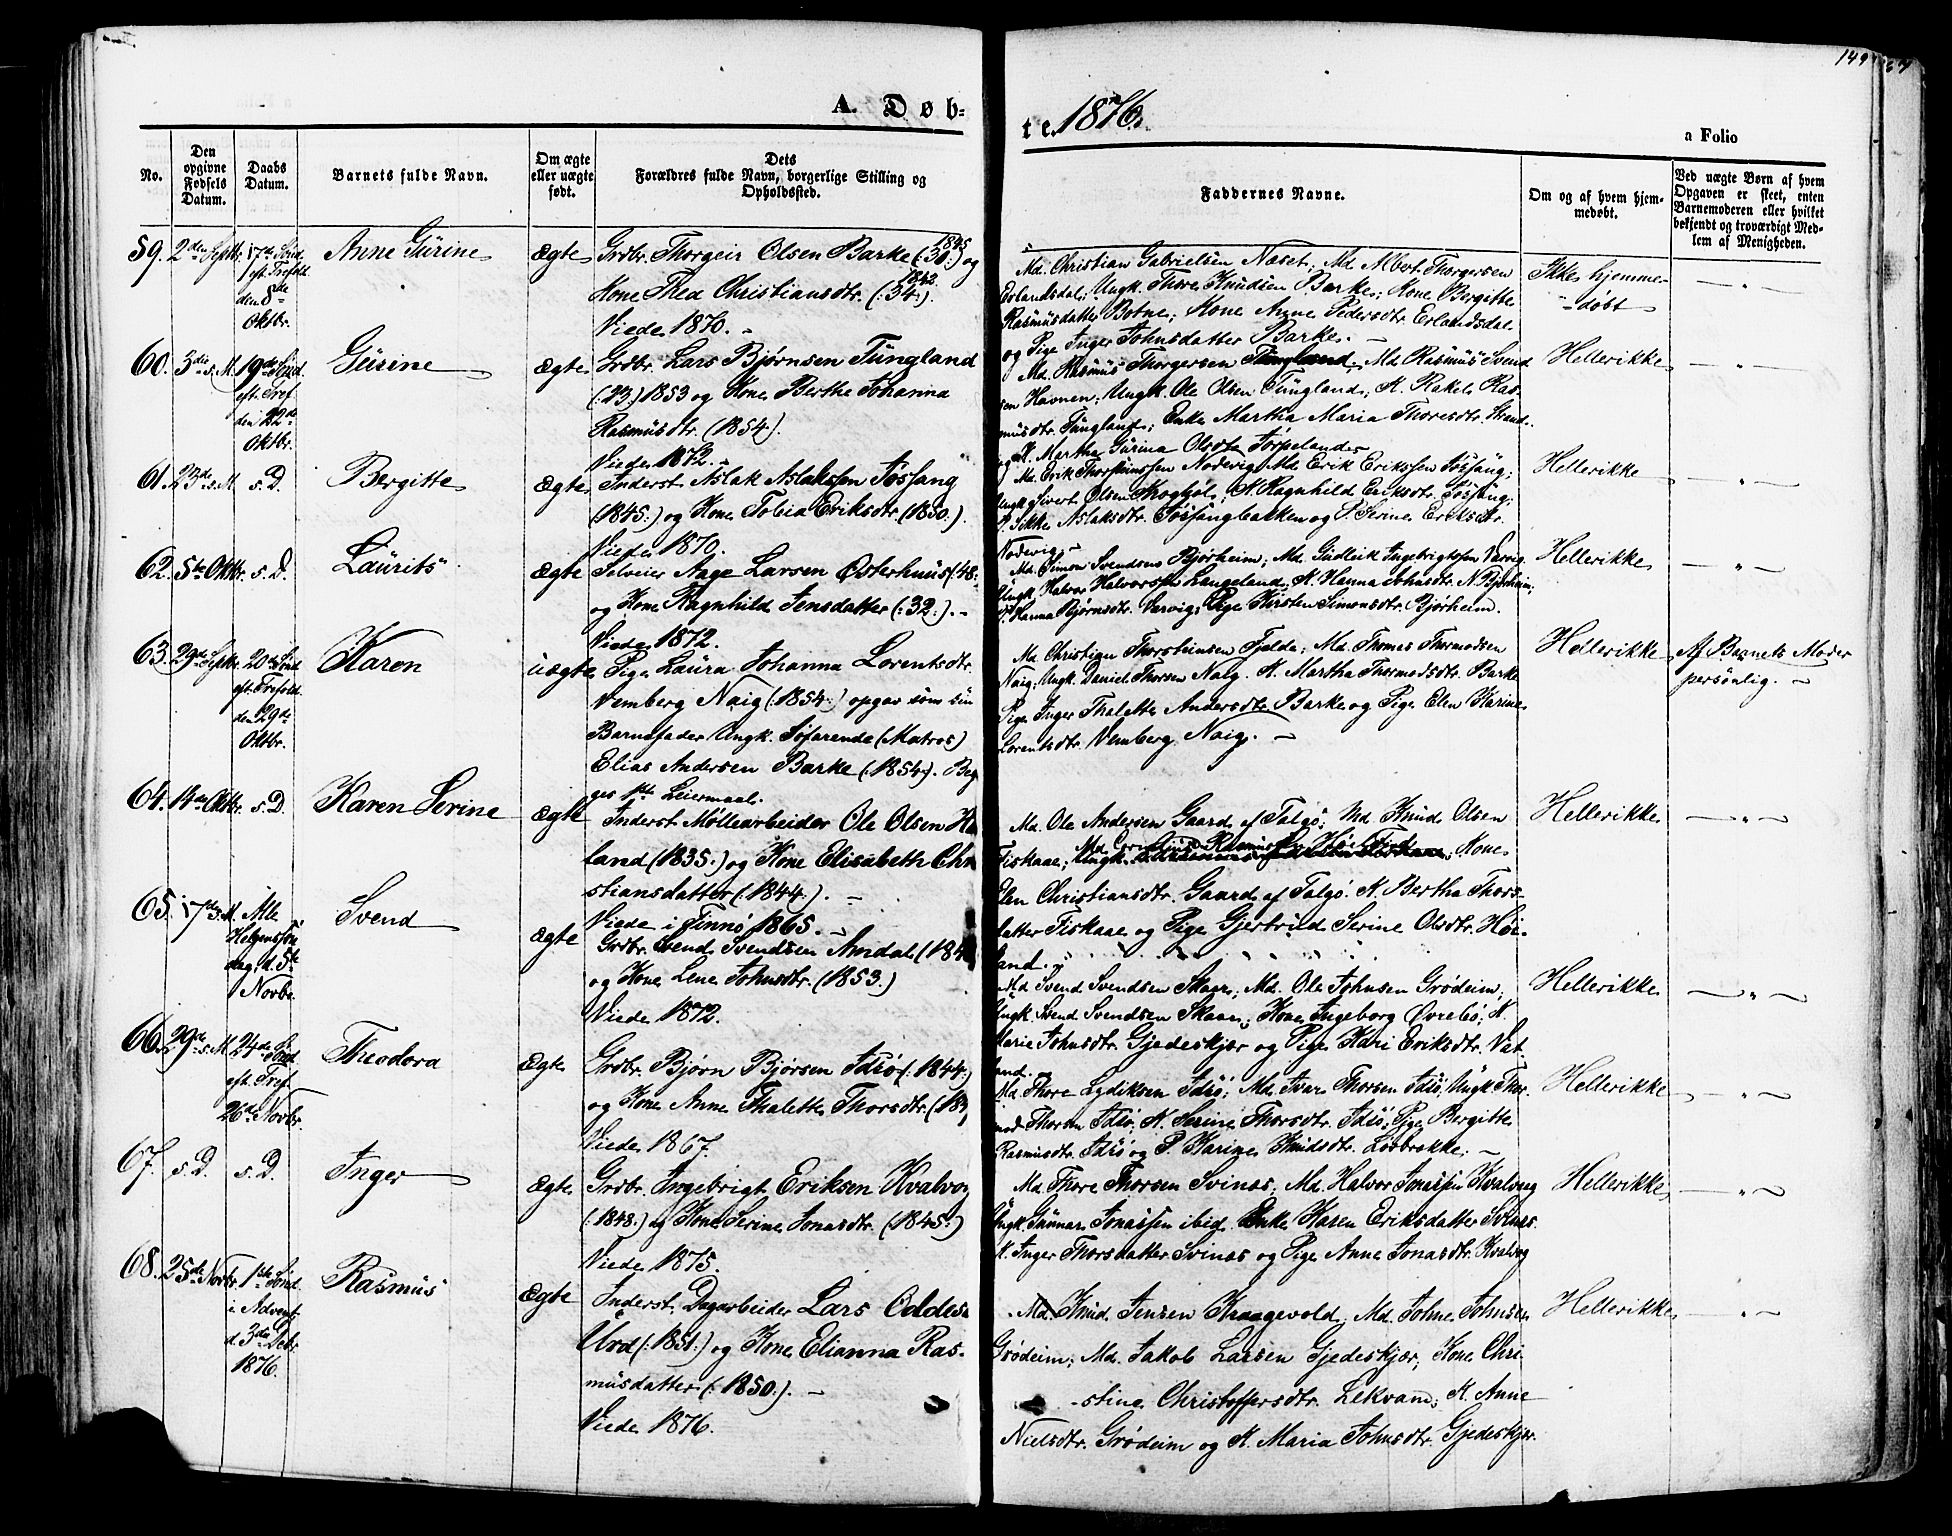 149
A. Døb-
te. 1876.
a Folio
No.
Den opgivne Fødsels Datum.
Daabs Datum.
Barnets fulde Navn.
Om ægte eller uægte født.
Dets
Forældres fulde Navn, borgerlige Stilling og
Opholdssted.
Faddernes Navne.
Om og af hvem hjem-
medøbt.
Ved uægte Børn af hvem
Opgaven er skeet, enten
Barnemoderen eller hvilket
bekjendt og troværdigt Med-
lem af Menigheden.
59. 2den Septbr. 17de Sönd.
eft. Trefold.
den 8de
Oktbr.
Anne Gürine
Ægte
Grdbr. Thorgeir Olsen Barke (:30:) og
1845
Kone Thea Christiansdtr. (:34:).
1842.
Viede 1870. -
Md. Christian Gabrielsen Næset; Md. Albert Thorgersen
Erlandsdal; Ungk. Thore Knudsen Barke; Kone Bergitte
Rasmusdatter Botne; Kone Anne Pedersdtr. Erlandsdal
og Pige Inger Johnsdatter Barke. -
Ikke hjemme-
døbt
60. 3die s. M. 19de Sönd.
eft. Tref.
den 22de
Oktbr.
Gürine
Ægte
Grdbr. Lars Bjørnsen Tüngland
(:23:) 1853 og Kone Berthe Johanna
Rasmüsdtr. (1854).
Viede 1872. -
Md. Rasmus Thorgersen Tungland; Md. Rasmus Svend-
sen Havnen; Ungk. Ole Olsen Tüngland; K. Rakel Ras-
musdtr. Tüngland; Enke Martha Maria Thoresdtr. Strand
og K. Martha Gürina Olsdtr. Torpeland
Hellerikke
61. 23de s. M. s. D.
Bergitte
Ægte
Inderst Aslak Aslaksen Fosfang
(1845:) og Kone Tobia Eriksdtr. (1850.)
Viede 1870.
Md. Erik Thorsteinssen Nodevig; Md. Erik Erikssen Fosfang;
Ungk. Sivert Olsen Skoghol; K. Ragnhild Eriksdtr. Fosfang;
P. Sikke Aslaksdtr. Fosfangbakken og P. Serine Eriksdtr.
Nodevig.
Hellerikke
62. 5te Oktbr. s. D.
Laürits
Ægte
Selveier Aage Larsen Østerhus (:48:)
og Kone Ragnhild Jensdatter (:32:). -
Viede 1872.
Md. Simon Svendsens Bjørheim; Md. Gudleik Ingebrigtsen Vervig
Ungk. Halvor Halvorsen Langeland; K. Hanna Johnsdtr. N. Bjørheim;
P. Hanna Bjørnsdtr. Varvig; Pige Kirsten Simonsdtr. Bjørheim.
Hellerikke
63. 29de Septbr. 20de Sönd
eft. Trefold.
den 29de
Oktbr.
Karen
uægte
Pige Laura Johanna Lorentsdtr.
Vemberg Naig (:1854:) opgav som sin
Barnefader Ungk. Søfarende (Matros)
Elias Andersen Barke (:1854). Beg-
ges 1ste Leiermaal.
Md. Christian Thorsteinsen Fjelde; Md. Thomas Thormodsen
Naig; Ungk. Daniel Thorsen Naig. K. Martha Thormodsdtr. Barke
Pige Inger Thalette Andersdtr. Barke og Pige Elen Karine
Lorentsdtr. Vemberg Naig. -
Hellerikke
Af Barnets Moder
personlig. -
64. 14de Oktbr. s. D.
Karen Serine
Ægte
Inderst Møllearbeider Ole Olsen Hø
land (1835:) og Kone Elisabeth Chri
stiansdatter (:1844.). -
Viede i Finnø 1865. -
Md. Ole Andersen Gaard af Talgø; Md. Knud Olsen
Fiskaae; Md. Cornelius Rasmussen Høie Fisk; Kone
Elen Christiansdtr. Gaard af Talgö. K. Bertha Thors-
datter Fiskaae og Pige Gjertrud Serine Olsdtr. Höi-
land.
Hellerikke
65. 17de s. M. Alle
Helgenssön-
dag, d. 5te
Novbr.
Svend
Ægte
Grdbr. Svend Svendsen Amdal (184
og Kone Lene Johnsdtr. (1853.)
Viede 1872.
Md. Svend Svendsen Skaar; Md. Ole Johnsen Grødeim;
Ungk. Svend Svendsen Skaar; Kone Ingeborg Øvrebø; K.
Marie Johnsdtr. Gjedeskjær og Pige Kari Eriksdtr. Vat-
land.
Hellerikke
66. 29de s. M. 24de Sönd.
eft. Tref.
26de Novbr.
Theodora
Ægte
Grdbr. Bjørn Bjørsen Idsø (:1844:)
og Kone Anne Thalette Thorsdtr. (:184
Viede 1867.
Md. Thore Lydiksen Idsö; Md. Ivar Thorsen Idsö; Ungk. Thor-
mod Thorsen Idsö; K. Serine Thorsdtr. Idsö; Pige Bergitte
Rasmusdtr. Idsö og P. Karine Knudsdtr. Løvbrekke. -
Hellerikke
67. s. D. s. D.
Inger
Ægte
Grdbr. Ingebrigt Eriksen Kvalvog
(:1848:) og Kone Serine Jonasdtr. (1845:)
Viede 1875.
Md. Thore Thorsen Svinæs; Md. Halvor Jonassen Kvalvaag
Ungk. Gunnar Jonassen ibid. Enke Karen Eriksdatter Svinæs.
K. Inger Thorsdatter Svinæs og Pige Anne Jonasdtr. Kvalvog
Hellerikke
68. 25de Novbr. 1ste Sönd.
i Advent
d. 3de Debr.
1876.
Rasmüs
Ægte
Inderst Dagarbeider Lars Oddes.
Urd (:1851:) og Kone Elianna Ras-
musdatter (:1850.). -
Viede 1876.
Md. Knud Jensen Kraagevold; Md. Johne Johnsen
Grødeim; Md. Jakob Larsen Gjedeskjær; Kone Chri-
-stine Christoffersdtr. Lekvam; K. Anne
Nielsdtr. Grødeim og K. Maria Johnsdtr. Gjedeskjær.
Hellerikke